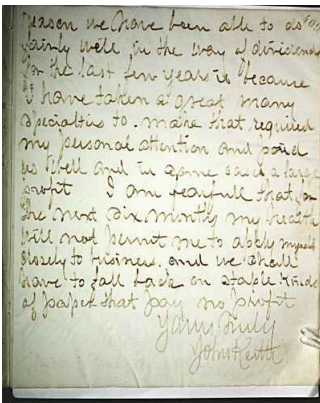 reason we have been able to do
fairly well in the way of dividends
for the last few years is because
I have taken a great many
specialties to make that required
my personal attention and paid
us well and in some cases a large
profit I am fearfull that for
the next six months my health
will not permit me to apply myself
closely to business. and we shall
have to fall back on staple kinds
of paper that pay no profit
Yours truly
John Keith